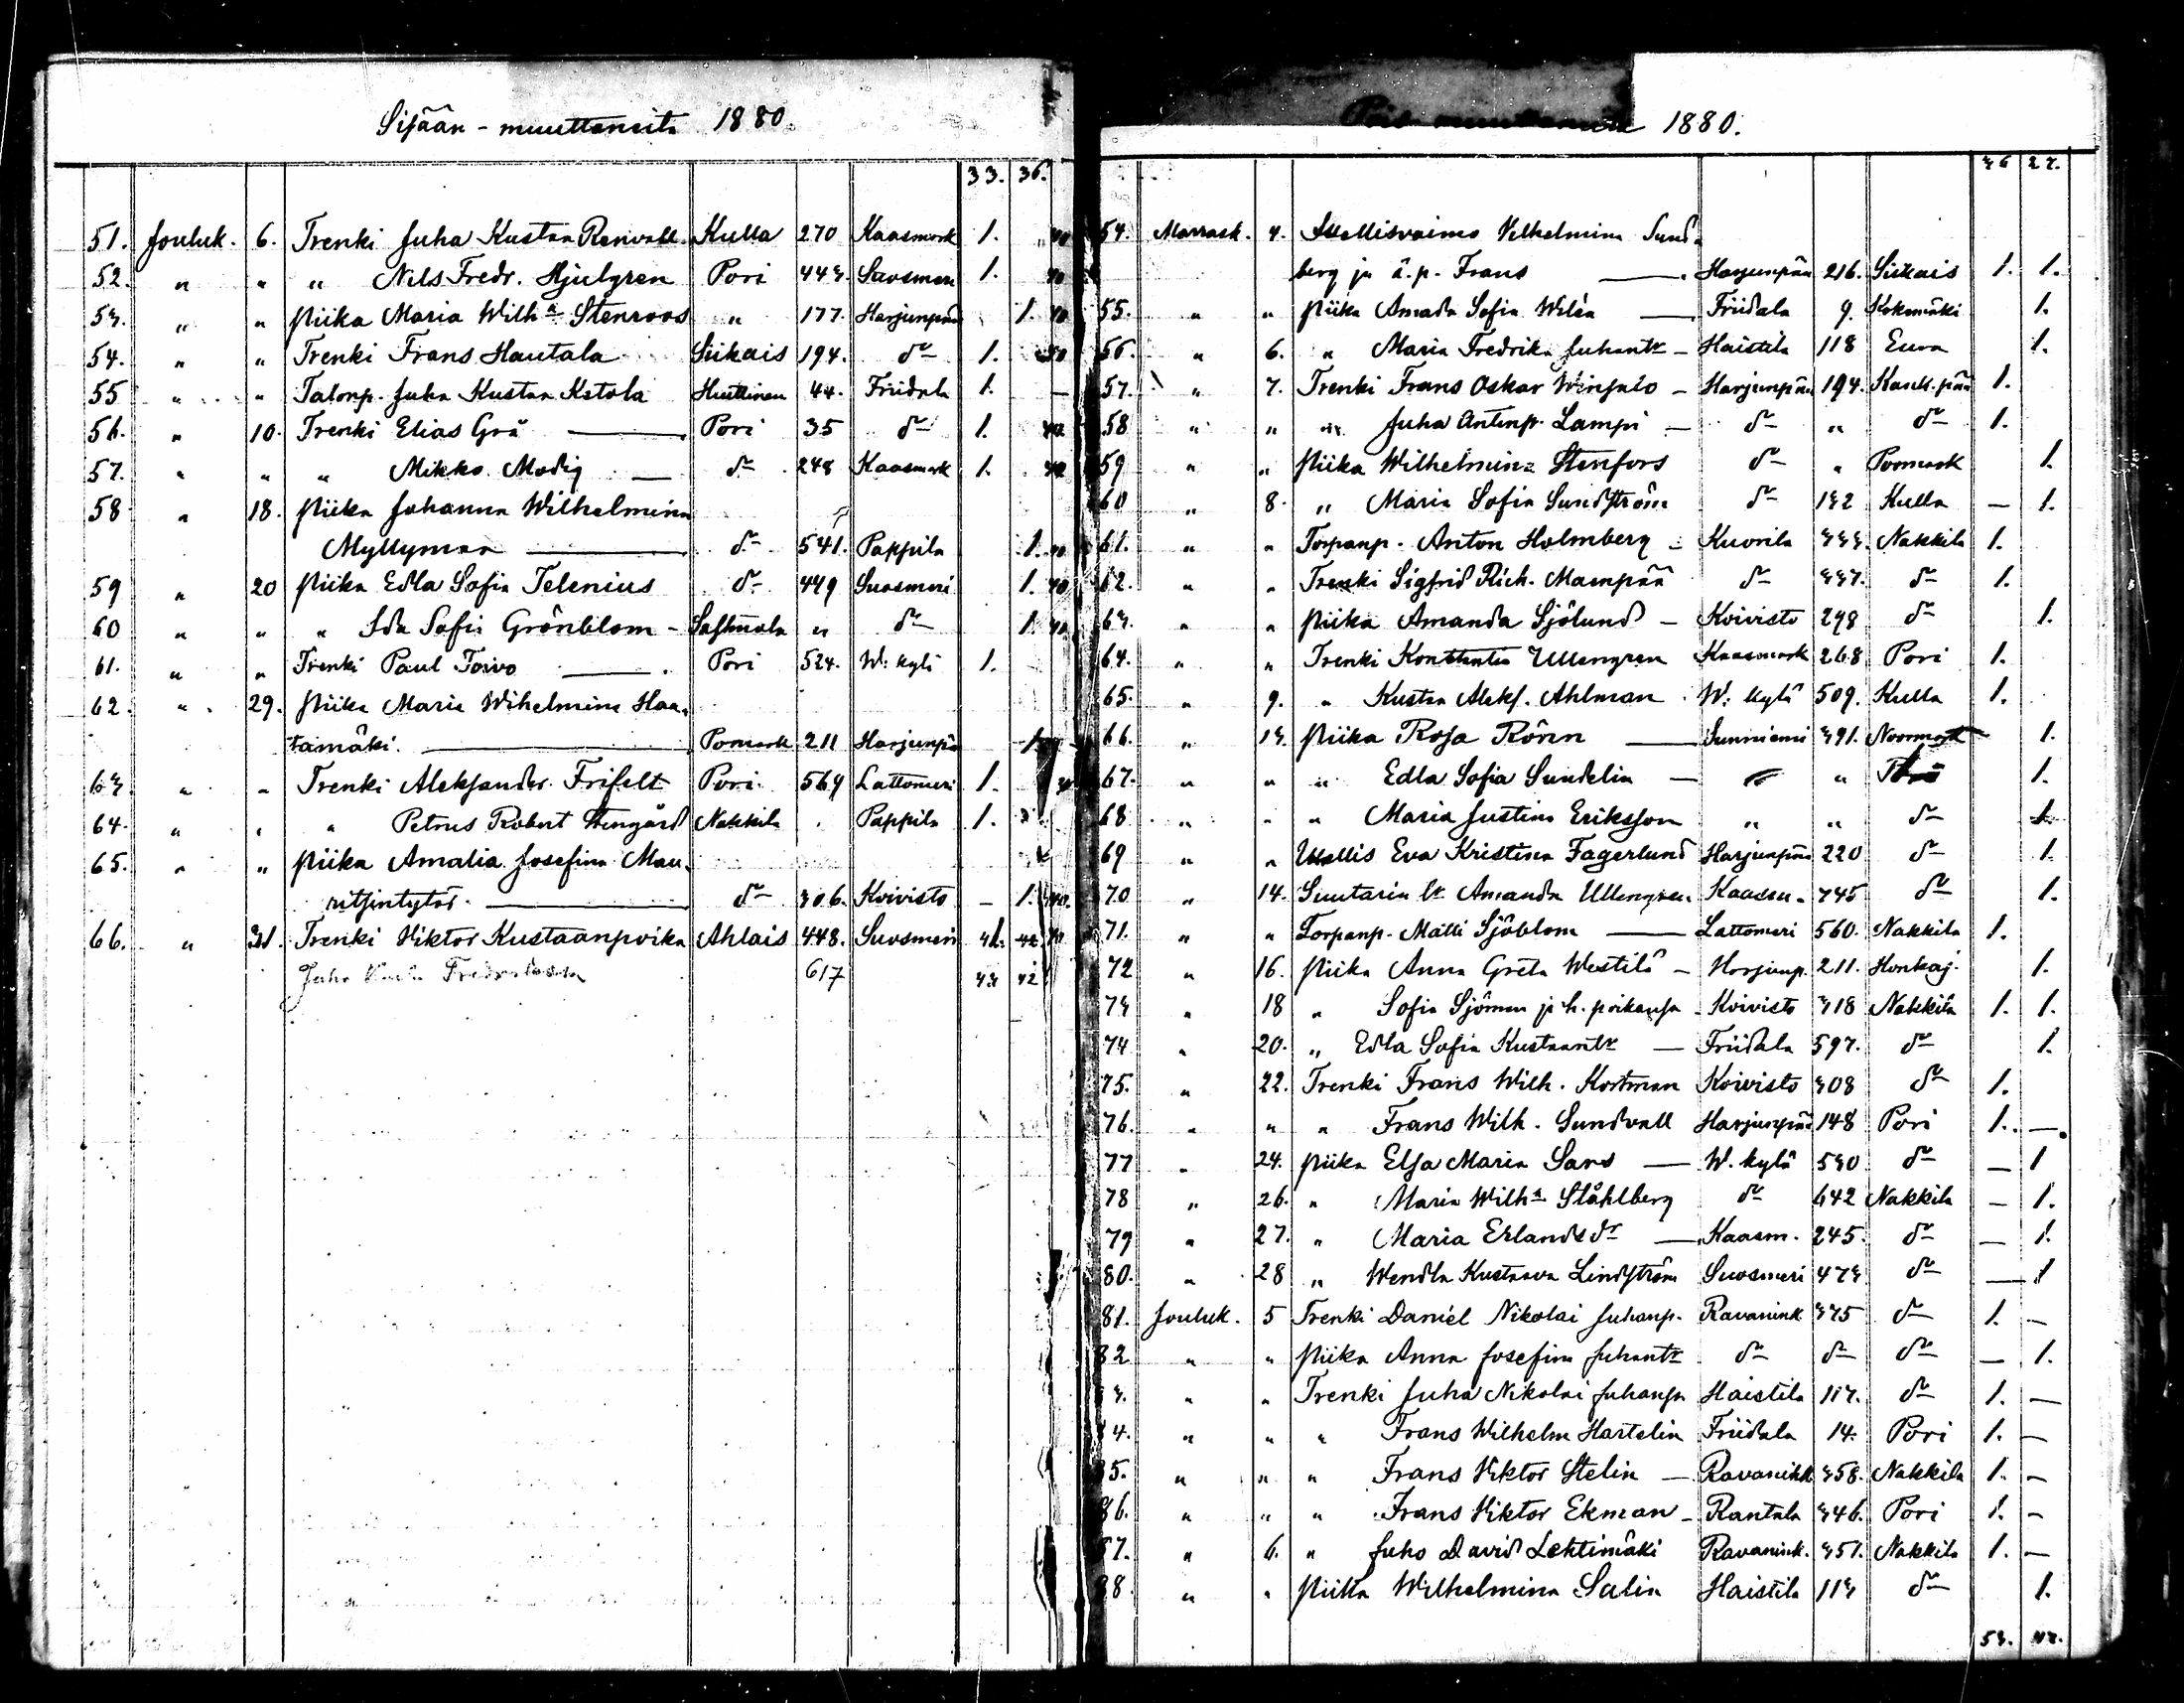 Sisään-muuttaneita 1880.
33. 36.
51. Jouluk. 6. Trenki Juha Kustaa Renvall Kulla 270 Kaasmark 1. 40
52. " " " Nils Fredr. Hjulgren Pori 443. Suosmeri 1. 40
53. " " Piika Maria Wilh:a Stenroos " 177. Harjunpää 1. 40
54. " " Trenki Frans Hautala Siikais 194. d:o 1. 40
55 " " Talonp. Juha Kustaa Ketola Huittinen 44. Friidala 1. —
56. " 10. Trenki Elias Grå — Pori 35 d:o 1. 40
57. " " " Mikko Modig — d:o 248 Kaasmark 1. 40
58 " 18. Piika Johanna Wilhelmina
Myllymaa — d:o 541. Pappila 1. 40
59 " 20 Piika Edla Sofia Telenius d:o 449 Suosmeri 1. 40
60 " " " Ida Sofia Grönblom - Sastmola " d:o 1. 40
61. " " Trenki Paul Toivo — Pori 524. W: kylä 1.
62. " 29. Piika Maria Wihelmina Haa-
tamäki. — Pomark 211 Harjunpää 1.
63. " " Trenki Aleksander Frifelt Pori 569 Lattomeri 1.
64. " " " Petrus Robert Stengård Nakkila Pappila 1.
65. " " Piika Amalia Josefina Mau-
ritsintytär — d:o 306. Koivisto — 1. 40.
66. " 31. Trenki Viktor Kustaanpoika Ahlais 448. Suosmeri
Juho Fredriksson 617 43 42
1880.
36 27.
54. Marrask. 4. Itsellisvaimo Vilhelmina Sund-
berg ja ä.p. Frans — Harjunpää 216. Siikais 1. 1.
55. " " Piika Amada Sofia Wilén — Friidala 9. Kokemäki 1.
56. " 6. " Maria Fredrika Juhantr - Haistila 118 Eura 1.
57. " 7. Trenki Frans Oskar Winsalo - Harjunpää 194. Kank.pää 1.
58 " " " Juha Antinp. Lampi — d:o " d:o 1.
59 " " Piika Wilhelmina Stenfors d:o " Poomark 1.
60 " 8. " Maria Sofia Sundström d:o 132 Kulla — 1.
61. " " Torpanp. Anton Holmberg - Kuorila 333. Nakkila 1.
62. " " Trenki Sigfrid Rich. Maenpää d:o 337. d:o 1.
63. " " Piika Amanda Sjölund — Koivisto 298 d:o 1.
64. " " Trenki Konstantin Ullengren Kaasmark 268 Pori 1.
65. " 9. " Kustaa Aleks. Ahlman W: kylä 509. Kulla 1.
66. " 13. Piika Rosa Rören — Sunniemi 391. Noormark 1.
67. " " " Edla Sofia Sundelin — " " Pori 1.
68 " " " Maria Justina Eriksson " " d:o 1.
69 " " Itsellis Eva Kristina Fagerlund Harjunpää 220 d:o 1.
70 " 14. Suutarin lr Amanda Ullengren Kaasm. 245 d:o 1.
71. " " Torpanp. Matti Sjöblom — Lattomeri 560. Nakkila 1.
72 " 16. Piika Anna Greta Westilä - Harjunp. 211. Honkaj. 1.
73 " 18 " Sofia Sjöman ja h. poikansa Koivisto 318 Nakkila 1. 1.
74 " 20. " Edla Sofia Kustaantr — Friidala 597. d:o 1.
75. " 22. Trenki Frans Wilh. Kortman Koivisto 308 d:o 1.
76. " " " Frans Wilh. Sundvall Harjunpää 148 Pori 1. —
77 " 24. Piika Elsa Maria Sars — W. kylä 530 d:o — 1
78 " 26. " Maria Wilh:a Ståhlberg d:o 642 Nakkila — 1.
79 " 27. " Maria Erlandsdr — Kaasm. 245. d:o — 1.
80. " 28 " Wendla Kustaava Lindström Suosmeri 473 d:o — 1
81. Jouluk. 5 Trenki Daniel Nikolai Juhanp. Ravanink 375 d:o 1. —
82 " " Piika Anna Josefina Juhantr d:o d:o d:o — 1.
3. " " Trenki Juha Nikolai Juhanp. Haistila 113. d:o 1. —
4. " " " Frans Wilhelm Hartelin Friidala 14. Pori 1. —
85. " " " Frans Viktor Stelin — Ravanink 358. Nakkila 1. —
86. " " " Frans Viktor Ekman - Rantala 346. Pori 1. —
87. " 6. " Juho David Lehtimäki Ravanink. 351. Nakkila 1. —
88. " " Piika Wilhelmina Salin Haistila 113 d:o 1.
53. 47.